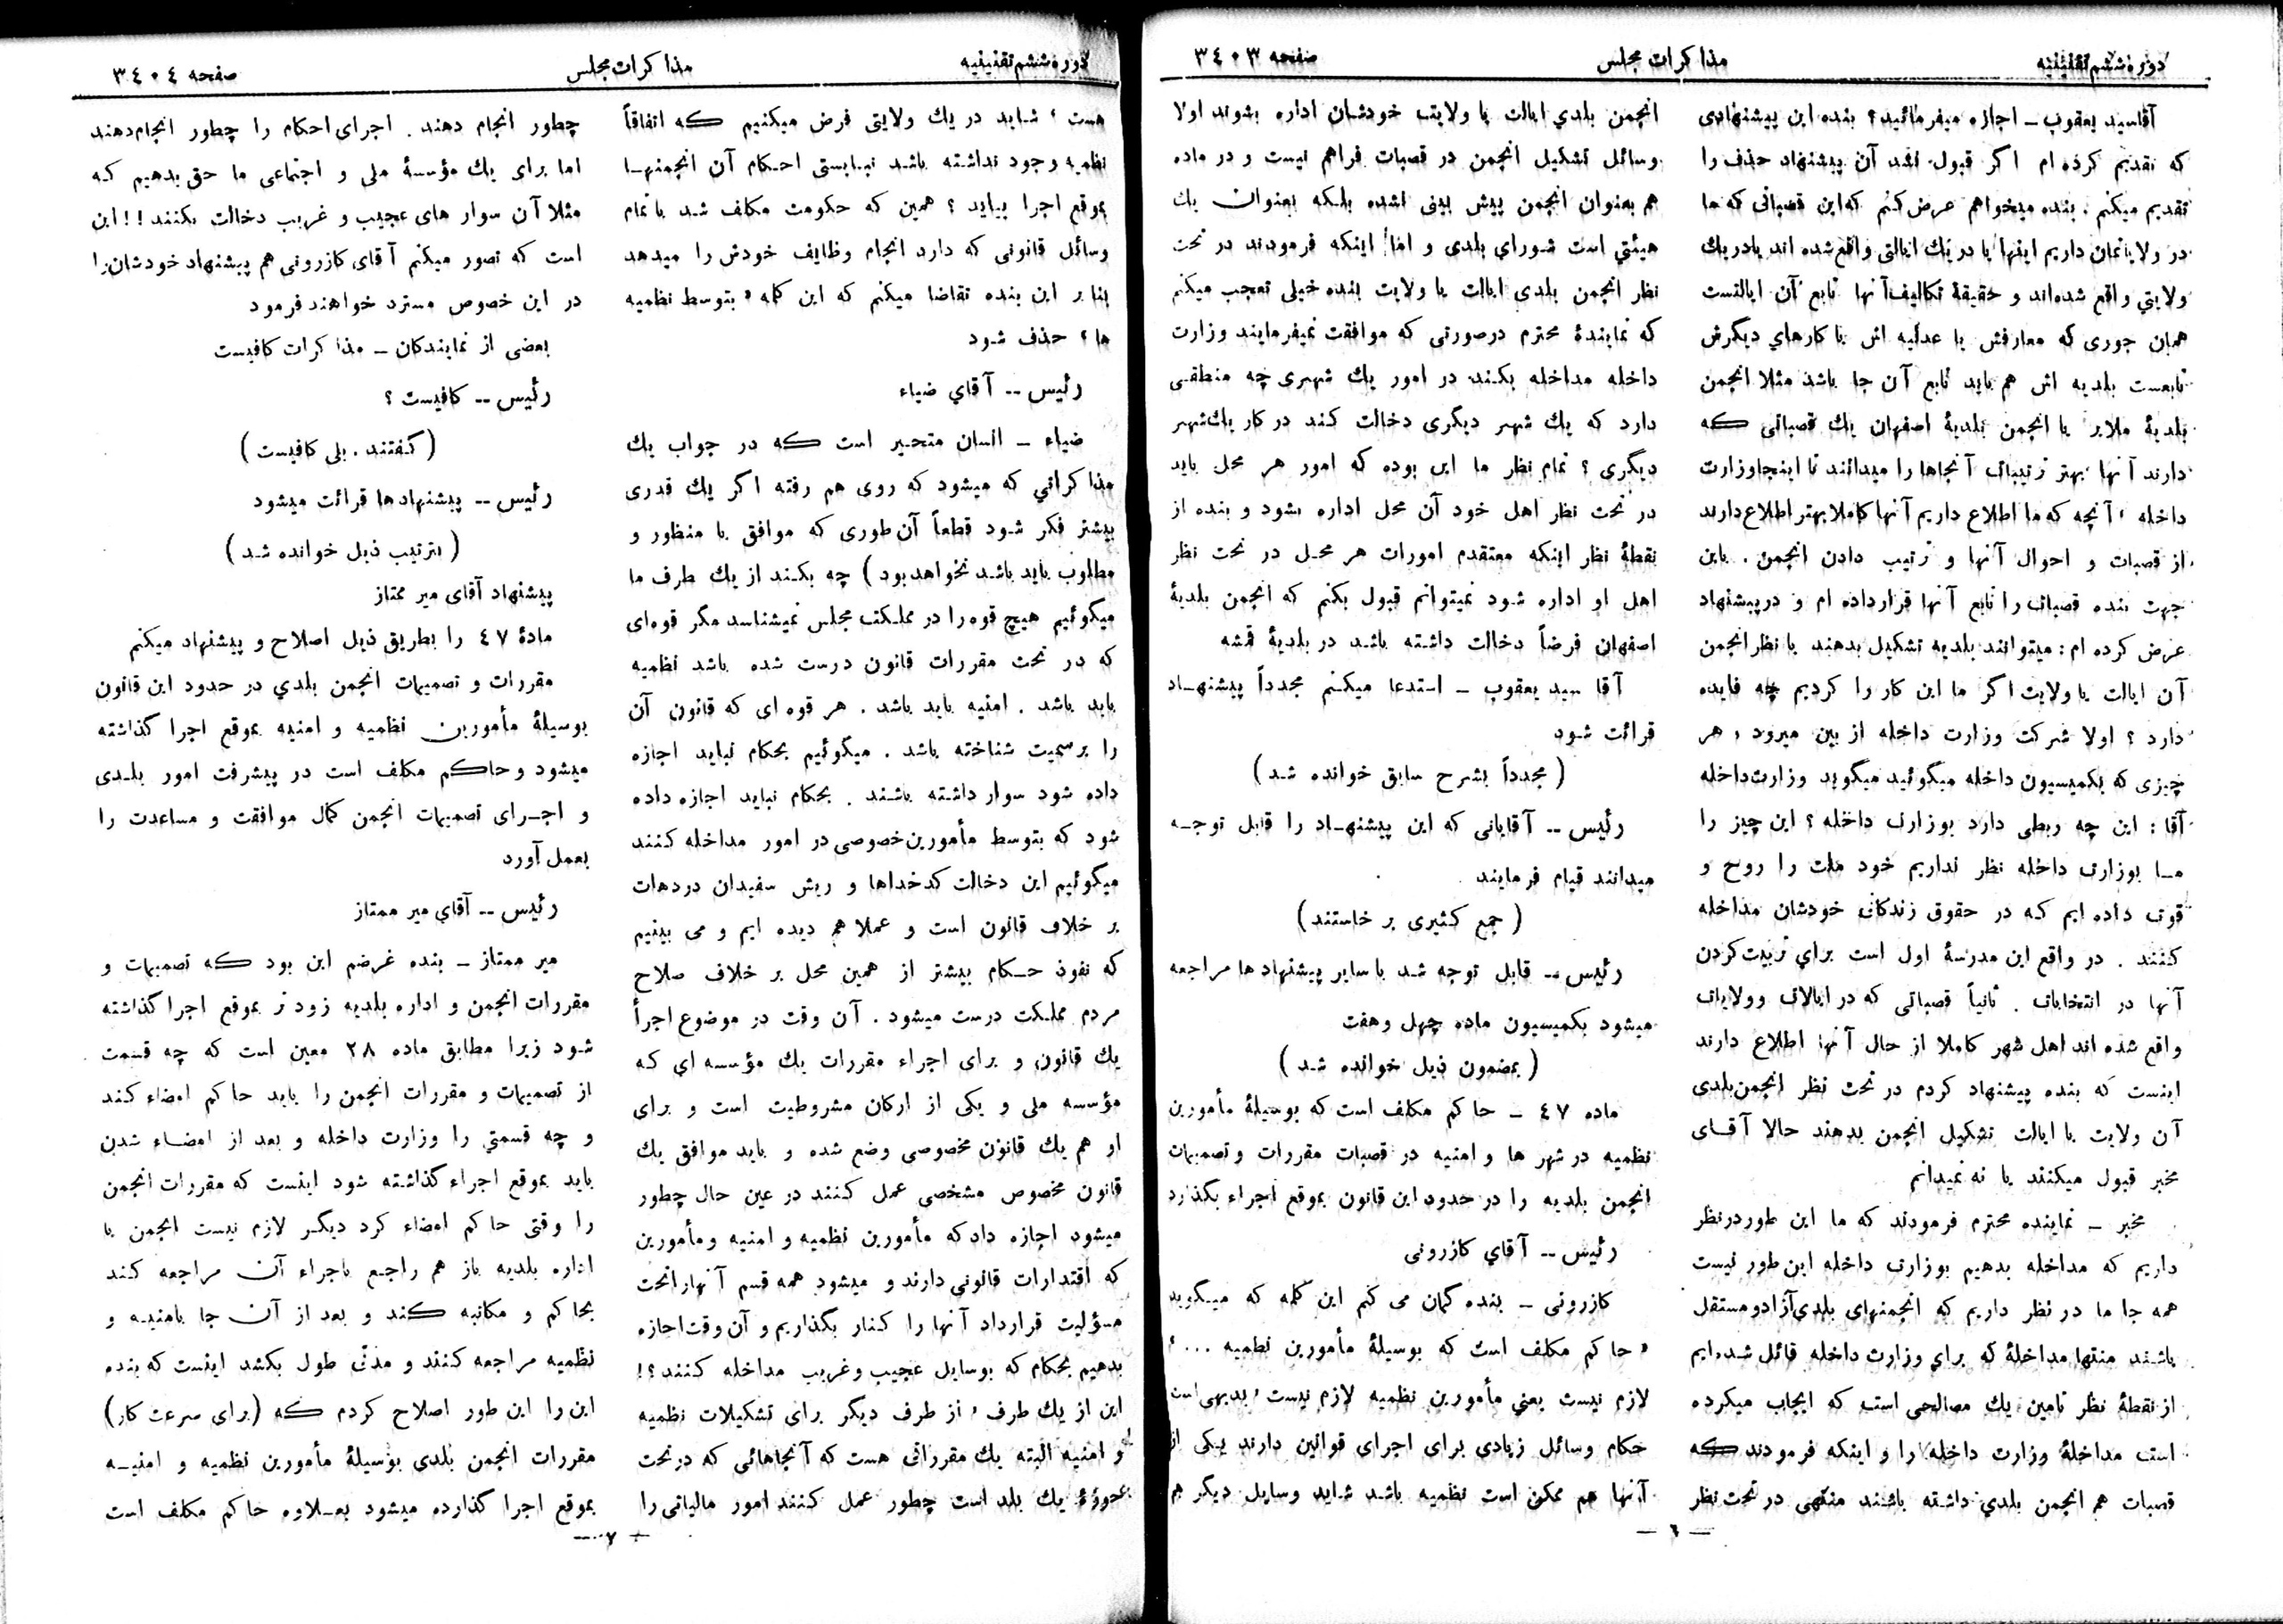 دوره ششم تقنینیه
مذاکرات مجلس
صفحه ٣٤٠٣
آقاسید یعقوب ـ اجازه میفرمائید؟ بنده این پیشنهادی
که تقدیم کرده ام اگر قبول نشد آن پیشنهاد حذف را
تقدیم میکنم . بنده میخواهم عرض کنم که این قصباتی که ما
در ولایاتمان داریم اینها یا در یك ایالتی واقع شده اند یا در یك
ولایتی واقع شده‌اند و حقیقةً تکالیف آنها تابع آن ایالتست
همان جوری که معارفش یا عدلیه اش یا کارهای دیگرش
تابعست بلدیه اش هم باید تابع آن جا باشد مثلا انجمن
بلدیهٔ ملایر یا انجمن بلدیهٔ اصفهان یك قصباتی که
دارند آنها بهتر ترتیبات آنجاها را میدانند تا اینجا وزارت
داخله ، آنچه که ما اطلاع داریم آنها کاملا بهتر اطلاع دارند
از قصبات و احوال آنها و ترتیب دادن انجمن . باین
جهت بنده قصبات را تابع آنها قرارداده ام و در پیشنهاد
عرض کرده ام : میتوانند بلدیه تشکیل بدهند با نظر انجمن
آن ایالت یا ولایت اگر ما این کار را کردیم چه فایده
دارد ؟ اولا شرکت وزارت داخله از بین میرود ، هر
چیزی که بکمیسیون داخله میگوئید میگوید وزارت داخله
آقا : این چه ربطی دارد بوزارت داخله ؟ این چیز را
ما بوزارت داخله نظر نداریم خود ملت را روح و
قوت داده ایم که در حقوق زندکانی خودشان مداخله
کنند . در واقع این مدرسهٔ اول است برای تربیت کردن
آنها در انتخابات . ثانیاً قصباتی که در ایالات وولایات
واقع شده اند اهل شهر کاملا از حال آنها اطلاع دارند
اینست که بنده پیشنهاد کردم در تحت نظر انجمن بلدی
آن ولایت یا ایالت تشکیل انجمن بدهند حالا آقای
مخبر قبول میکنند یا نه نمیدانم
مخبر ـ نماینده محترم فرمودند که ما این طور در نظر
داریم که مداخله بدهیم بوزارت داخله این طور نیست
همه جا ما در نظر داریم که انجمنهای بلدی آزاد و مستقل
باشند منتها مداخلهٔ که برای وزارت داخله قائل شده ایم
از نقطهٔ نظر تامین یك مصالحی است که ایجاب میکرده
است مداخلهٔ وزارت داخله را و اینکه فرمودند که
قصبات هم انجمن بلدی داشته باشند منتهی در تحت نظر
انجمن بلدی ایالت یا ولایت خودشان اداره بشوند اولا
وسائل تشکیل انجمن در قصبات فراهم نیست و در ماده
هم بعنوان انجمن پیش بینی نشده بلکه بعنوان یك
هیئتی است شورای بلدی و اما اینکه فرمودند در تحت
نظر انجمن بلدی ایالت یا ولایت بنده خیلی تعجب میکنم
که نمایندهٔ محترم درصورتی که موافقت نمیفرمایند وزارت
داخله مداخله بکند در امور یك شهری چه منطقی
دارد که یك شهر دیگری دخالت کند در کار یك شهر
دیگری ؟ تمام نظر ما این بوده که امور هر محل باید
در تحت نظر اهل خود آن محل اداره بشود و بنده از
نقطهٔ نظر اینکه معتقدم امورات هر محل در تحت نظر
اهل او اداره شود نمیتوانم قبول بکنم که انجمن بلدیهٔ
اصفهان فرضاً دخالت داشته باشد در بلدیهٔ قمشه
آقا سید یعقوب ـ استدعا میکنم مجدداً پیشنهاد
قرائت شود
( مجدداً بشرح سابق خوانده شد )
رئیس -- آقایانی که این پیشنهاد را قابل توجه
میدانند قیام فرمایند
( جمع کثیری بر خاستند )
رئیس -- قابل توجه شد با سایر پیشنهادها مراجعه
میشود بکمیسیون ماده چهل وهفت
( بمضمون ذیل خوانده شد )
ماده ٤٧ ـ حاکم مکلف است که بوسیلهٔ مأمورین
نظمیه در شهر ها و امنیه در قصبات مقررات و تصمیمات
انجمن بلدیه را در حدود این قانون بموقع اجراء بگذارد
رئیس -- آقای کازرونی
کازرونی ـ بنده گمان می کنم این کلمه که میگوید
« حاکم مکلف است که بوسیلهٔ مأمورین نظمیه ... »
لازم نیست یعنی مأمورین نظمیه لازم نیست ، بدیهی است
حکام وسائل زیادی برای اجرای قوانین دارند یکی از
آنها هم ممکن است نظمیه باشد شاید وسایل دیگر هم
— ٦ —
دوره ششم تقنینیه
مذاکرات مجلس
صفحه ٣٤٠٤
هست ، شاید در یك ولایتی فرض میکنیم که اتفاقاً
نظمیه وجود نداشته باشد نبایستی احکام آن انجمنها
بموقع اجرا بیاید ؟ همین که حکومت مکلف شد با تمام
وسائل قانونی که دارد انجام وظایف خودش را میدهد
بنا بر این بنده تقاضا میکنم که این کلمه « بتوسط نظمیه
ها » حذف شود
رئیس -- آقای ضیاء
ضیاء ـ انسان متحیر است که در جواب یك
مذاکراتی که میشود که روی هم رفته اگر یك قدری
بیشتر فکر شود قطعاً آن طوری که موافق با منظور و
مطلوب باید باشد نخواهد بود ) چه بکند از یك طرف ما
میگوئیم هیچ قوه را در مملکت مجلس نمیشناسد مگر قوه‌ای
که در تحت مقررات قانون درست شده باشد نظمیه
باید باشد . امنیه باید باشد . هر قوه ای که قانون آن
را برسمیت شناخته باشد . میگوئیم بحکام نباید اجازه
داده شود سوار داشته باشند . بحکام نباید اجازه داده
شود که بتوسط مأمورین خصوصی در امور مداخله کنند
میگوئیم این دخالت کدخداها و ریش سفیدان در دهات
بر خلاف قانون است و عملا هم دیده ایم و می بینیم
که نفوذ حکام بیشتر از همین محل بر خلاف صلاح
مردم مملکت درست میشود . آن وقت در موضوع اجرأ
یك قانون و برای اجراء مقررات یك مؤسسه ای که
مؤسسه ملی و یکی از ارکان مشروطیت است و برای
او هم یك قانون مخصوصی وضع شده و باید موافق یك
قانون مخصوص مشخصی عمل کنند در عین حال چطور
میشود اجازه داد که مأمورین نظمیه و امنیه ومأمورین
که اقتدارات قانونی دارند و میشود همه قسم آنها را تحت
مسؤلیت قرارداد آنها را کنار بگذاریم و آن وقت اجازه
بدهیم بحکام که بوسایل عجیب وغریب مداخله کنند ؟!
این از یك طرف ، از طرف دیگر برای تشکیلات نظمیه
و امنیه البته یك مقرراتی هست که آنجاهائی که در تحت
حوزهٔ یك بلد است چطور عمل کنند امور مالیاتی را
چطور انجام دهند . اجرای احکام را چطور انجام دهند
اما برای یك مؤسسهٔ ملی و اجتماعی ما حق بدهیم که
مثلا آن سوار های عجیب و غریب دخالت بکنند !! این
است که تصور میکنم آقای کازرونی هم پیشنهاد خودشان را
در این خصوص مسترد خواهند فرمود
بعضی از نمایندکان ـ مذاکرات کافیست
رئیس -- کافیست ؟
( گفتند . بلی کافیست )
رئیس -- پیشنهادها قرائت میشود
( بترتیب ذیل خوانده شد )
پیشنهاد آقای میر ممتاز
مادهٔ ٤٧ را بطریق ذیل اصلاح و پیشنهاد میکنم
مقررات و تصمیمات انجمن بلدی در حدود این قانون
بوسیلهٔ مأمورین نظمیه و امنیه بموقع اجرا گذاشته
میشود و حاکم مکلف است در پیشرفت امور بلدی
و اجرای تصمیمات انجمن کمال موافقت و مساعدت را
بعمل آورد
رئیس -- آقای میر ممتاز
میر ممتاز ـ بنده غرضم این بود که تصمیمات و
مقررات انجمن و اداره بلدیه زود تر بموقع اجرا گذاشته
شود زیرا مطابق ماده ٢٨ معین است که چه قسمت
از تصمیمات و مقررات انجمن را باید حاکم امضاء کند
و چه قسمتی را وزارت داخله و بعد از امضاء شدن
باید بموقع اجراء گذاشته شود اینست که مقررات انجمن
را وقتی حاکم امضاء کرد دیگر لازم نیست انجمن یا
اداره بلدیه باز هم راجع باجراء آن مراجعه کند
بحاکم و مکاتبه کند و بعد از آن جا بامنیه و
نظمیه مراجعه کنند و مدتی طول بکشد اینست که بنده
این را این طور اصلاح کردم که (برای سرعت کار)
مقررات انجمن بلدی بوسیلهٔ مأمورین نظمیه و امنیه
بموقع اجرا گذارده میشود بعلاوه حاکم مکلف است
— ٧ —